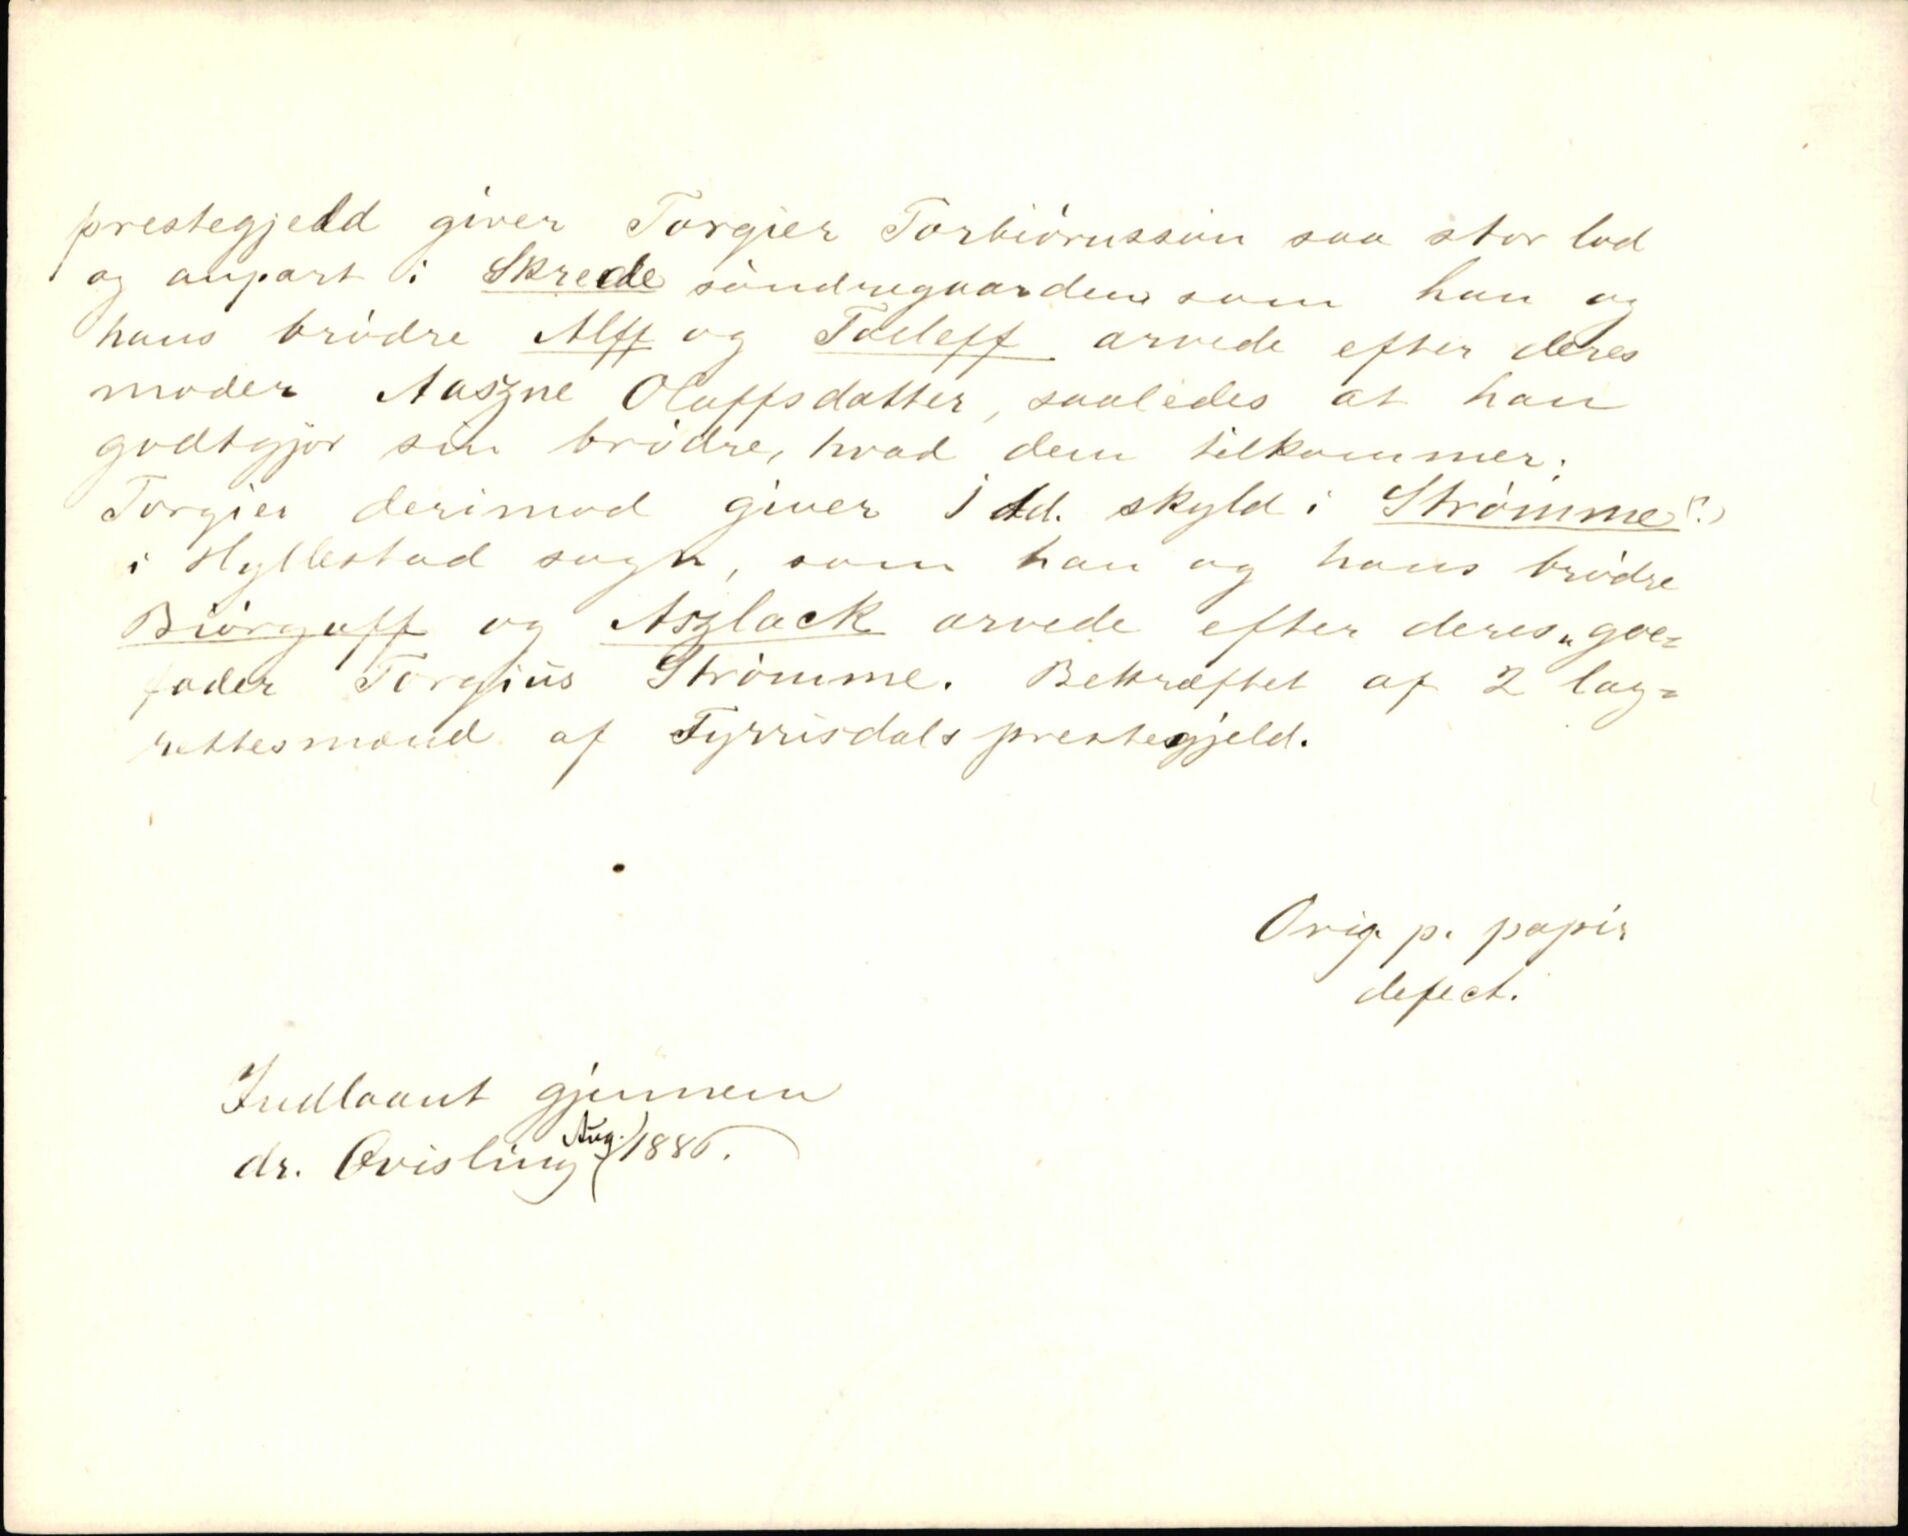 prestegjeld giver Torgier Torbiörnssön saa stor lod
og anpart i Skrede söndregaarden som han og
hans brödre Alff og Tolleff arvede efter deres
moder Aaszne Olaffsdatter, saaledes at han
godtgjör sin brödre, hvad dem tilkommer.
Torgier derimod giver 1 td. skyld i Strömme (?)
i Hyllestad sogn, som han og hans brödre
Biörgaff og Aszlack arvede efter deres „goe=
fader Torgius Strömme. Bekræftet af 2 lag=
rettesmænd af Tyrrisdals prestegjeld.
Orig. p. papir
defect.
Indlaant gjennem
dr. Qvisling Aug. 1886.